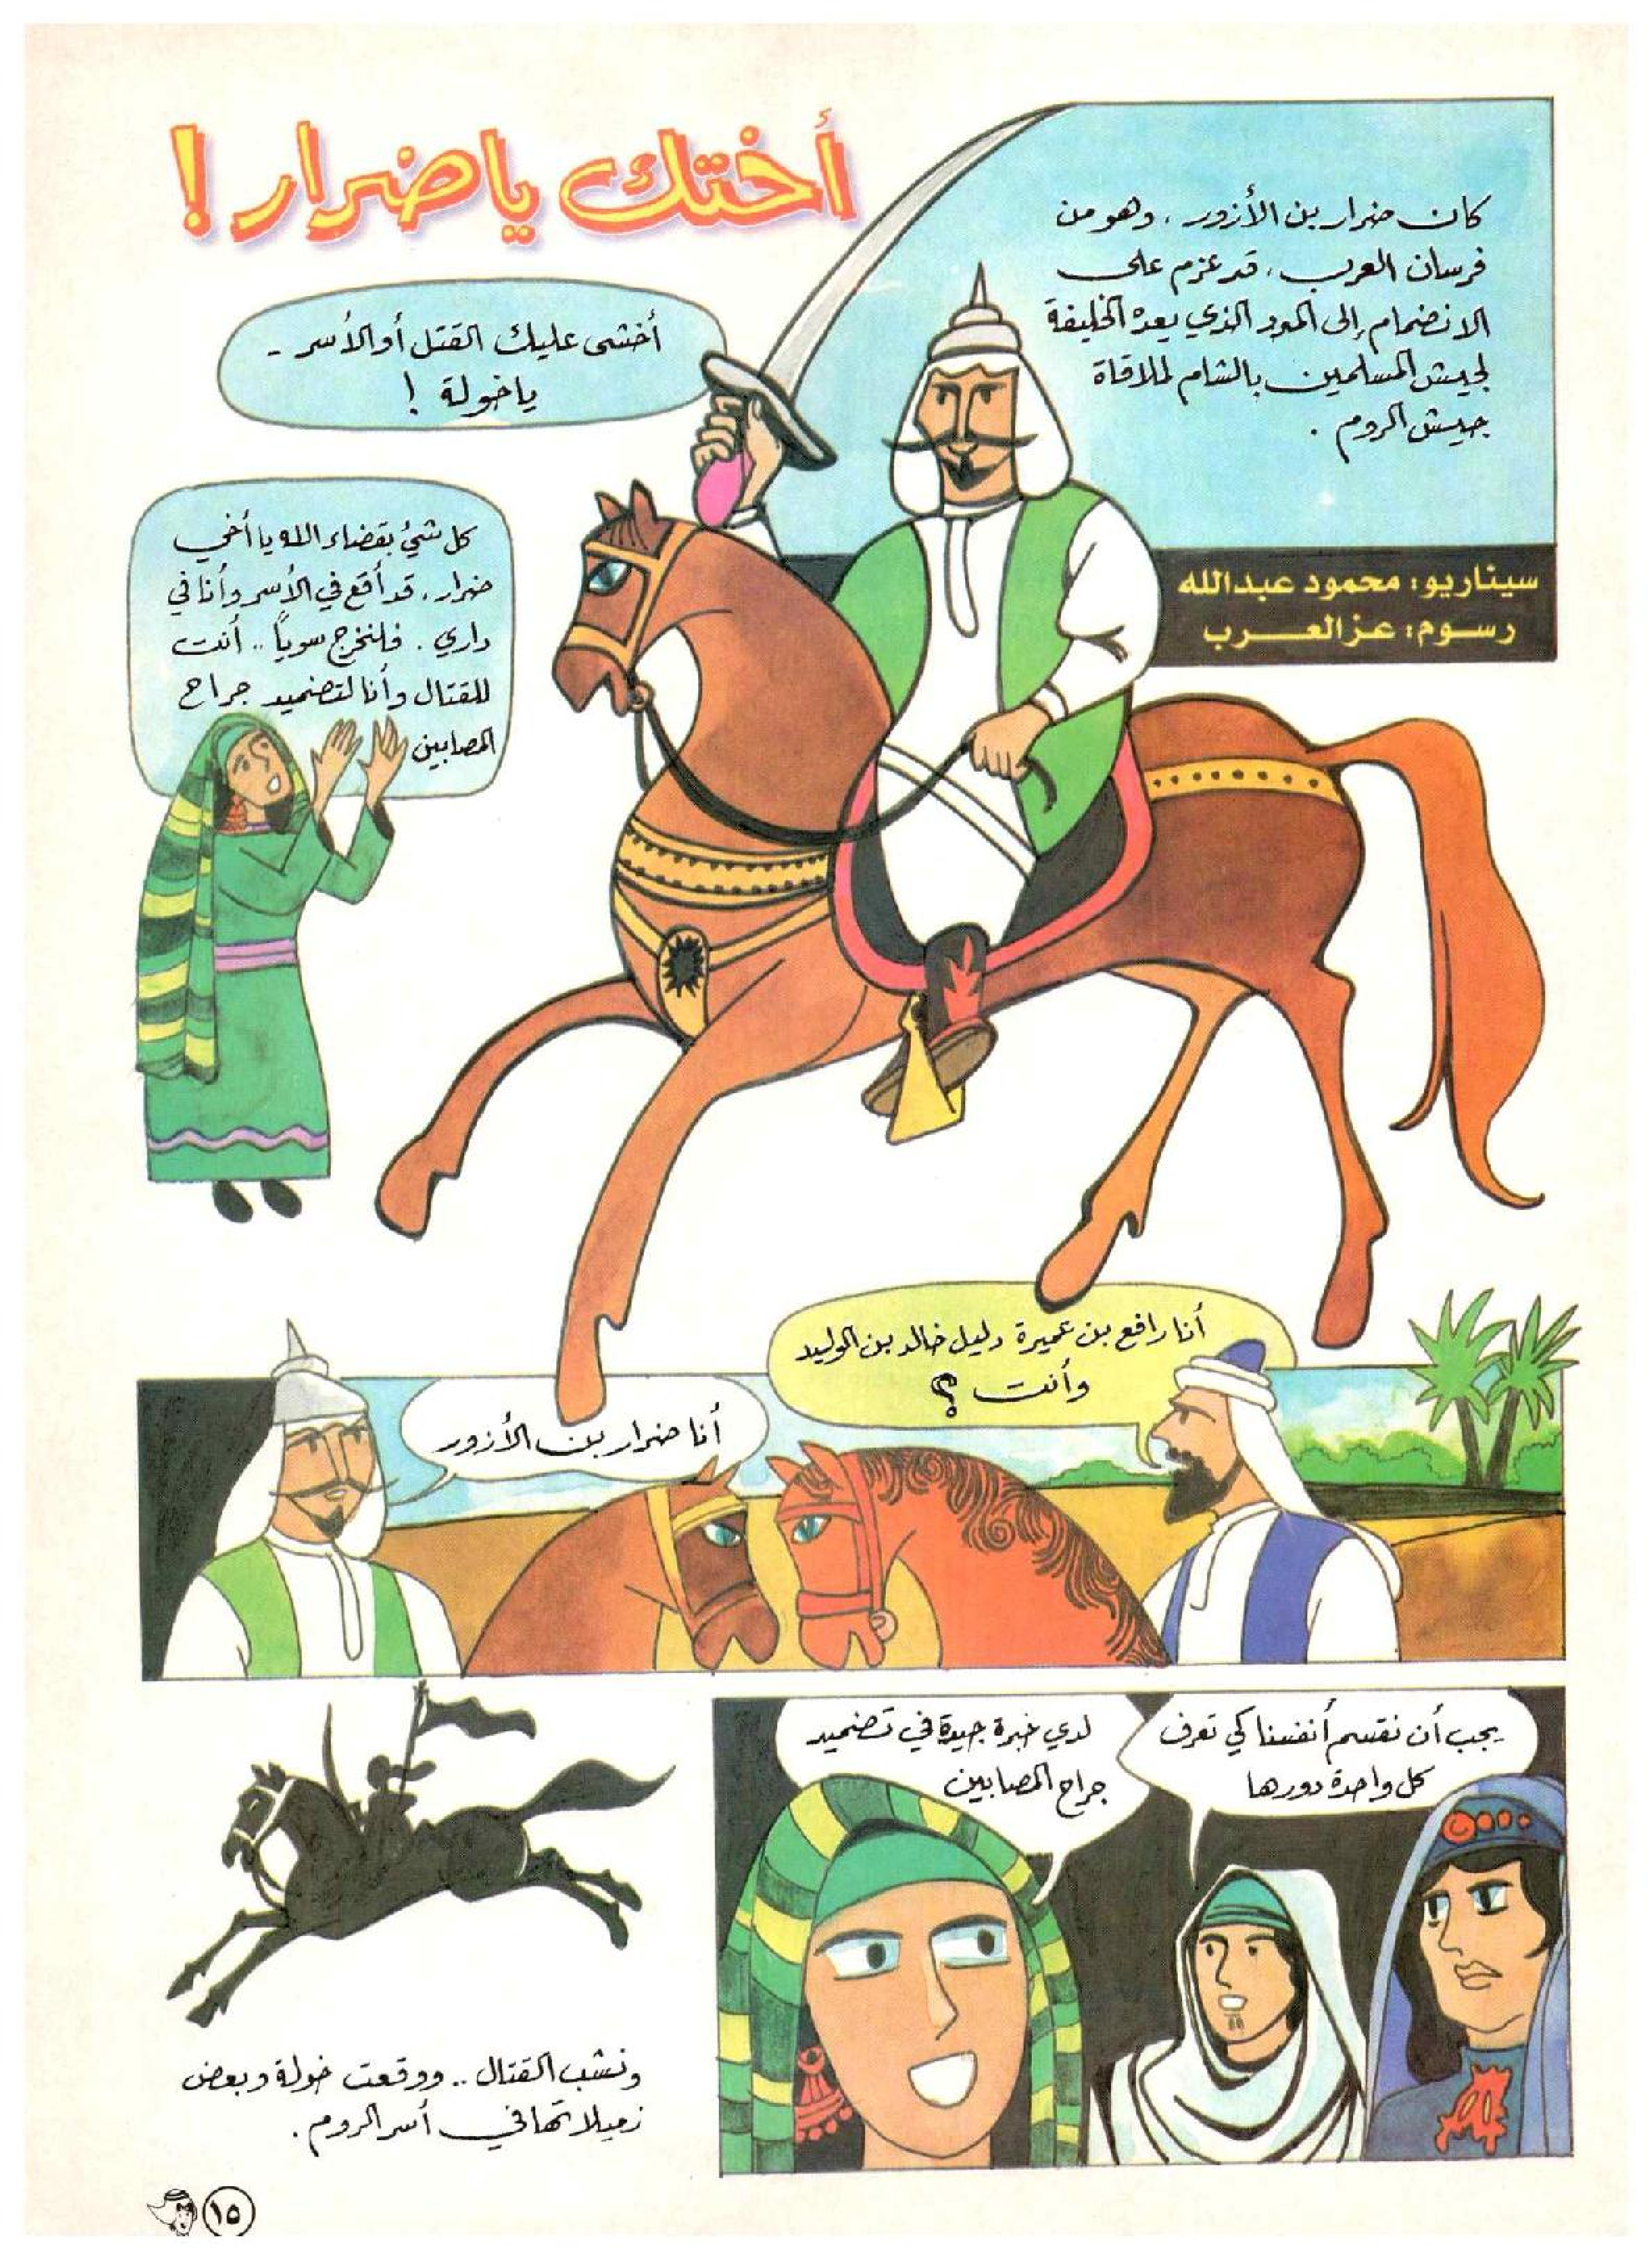 أختك ياضرار!
كان ضرار بن الأزور، وهو من
فرسان العرب، قد عزم على
الانضمام إلى المدد الذي يعده الخليفة
لجيش المسلمين بالشام لملاقاة
جيش الروم.
أخشى عليك القتل أو الأسر -
يا خولة!
كل شيء بقضاء الله يا أخي
ضرار، قد أقع في الأسر وأنا في
داري. فلنخرج سوياً.. أنت
للقتال وأنا لتضميد جراح
المصابين
سيناريو: محمود عبدالله
رسوم: عز العرب
أنا رافع بن عميرة دليل خالد بن الوليد
وأنت؟
أنا ضرار بن الأزور
يجب أن نقسم أنفسنا كي تعرف
كل واحدة دورها
لدي خبرة جيدة في تضميد
جراح المصابين
ونشب القتال.. ووقعت خولة وبعض
زميلاتها في أسر الروم.
١٥